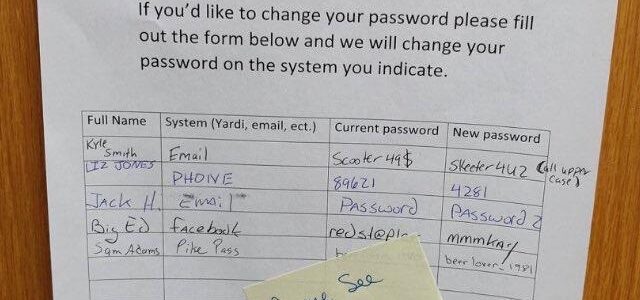 If you'd like to change your password please fill
out the form below and we will change your
password on the system you indicate.
Full Name System (Yardi, email, ect.) Current password New password
Kyle Smith Email Scooter49$ Skeeter4U2 (all upper case)
LIZ JONES PHONE 89621 4281
Jack H. Email PASSWORD PASSWORD 2
Big Ed Facebook mmmkay
Sam Adams Pike Pass beerlover1981
See